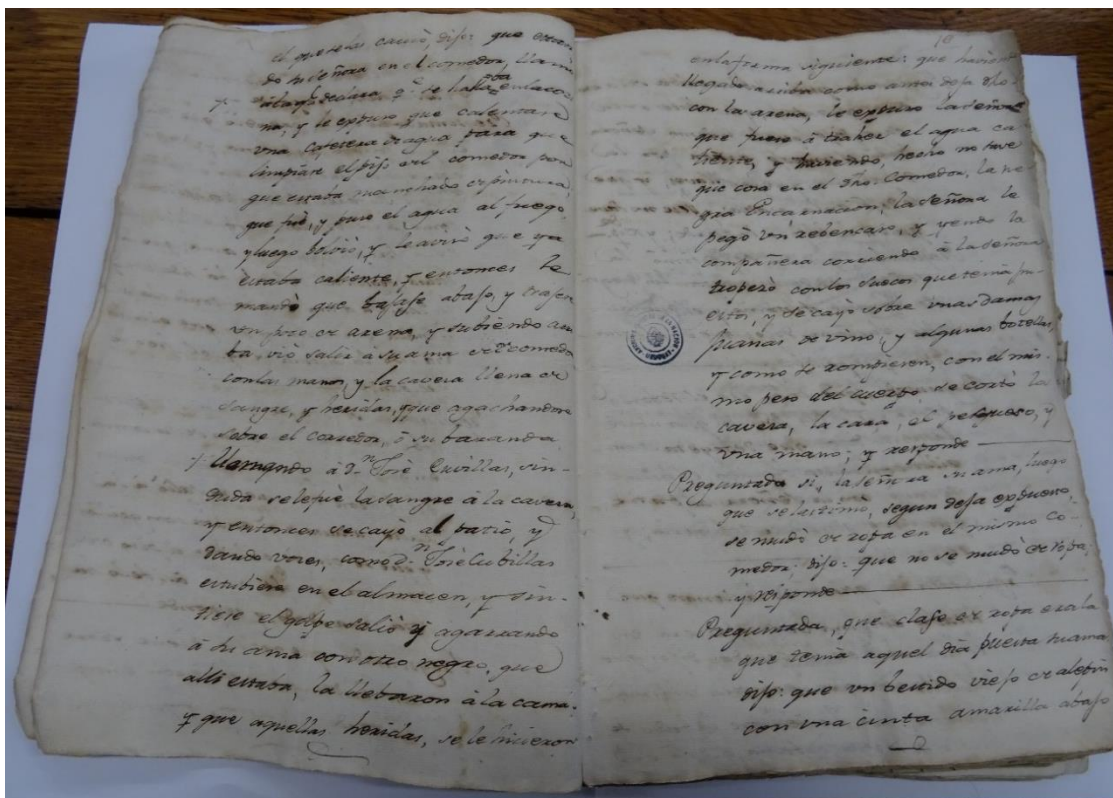 el que se las causó, dijo: que estan-
do su Señora en el comedor, llamó
á la q.e declara q.e se hallaba en la coci-
na, y le expuso que calentase
una cafetera de agua para que
limpiase el piso del comedor por
que estaba manchado de pintura
que fué, y puso el agua al fuego,
y luego bolvió, y le avisó que ya
estaba caliente, y entonces le
mandó que bajase abajo, y trajese
un poco de arena, y subiendo arri-
ba, vió salir a su ama del comedor
con las manos, y la cavesa llena de
sangre, y heridas, y que agachandose
sobre el corredor, ó su baranda
llamando á D.n José Cuvillas, sin-
duda se le fué la sangre á la cavesa,
y entonces se cayó al patio, y
dando voces, como D.n José Cubillas
estubiese en el almacen, y sin-
tiese el golpe salió y agarrando
á su ama con otro negro, que
alli estaba, la llebaron á la cama.
y que aquellas heridas, se le hicieron
en la forma siguiente: que haviendo
llegado arriba como antes deja dho.
con la arena, le expuso la Señora
que fuese á traher el agua ca-
liente, y haviendo, hecho no se
que cosa en el dho. Comedor, la ne-
gra Encarnacion, la Señora le
pegó un rebencaso, y yendo la
compañera corriendo á la Señora
tropesó con los suecos que tenia pu-
estos, y se cayó sobre unas damas
juanas de vino, y algunas botellas,
y como se rompieron, con el mis-
mo peso del cuerpo se cortó la
cavesa, la cara, el pescueso, y
una mano; y responde
Preguntada si, la Señora su ama, luego
que se lastimó, segun deja expuesto,
se mudó de ropa en el mismo co-
medor; dijo: que no se mudó de ropa,
y responde
Preguntada, que clase de ropa era la
que tenia aquel dia puesta su ama
dijo: que un bestido viejo de alepin
con una cinta amarilla abajo